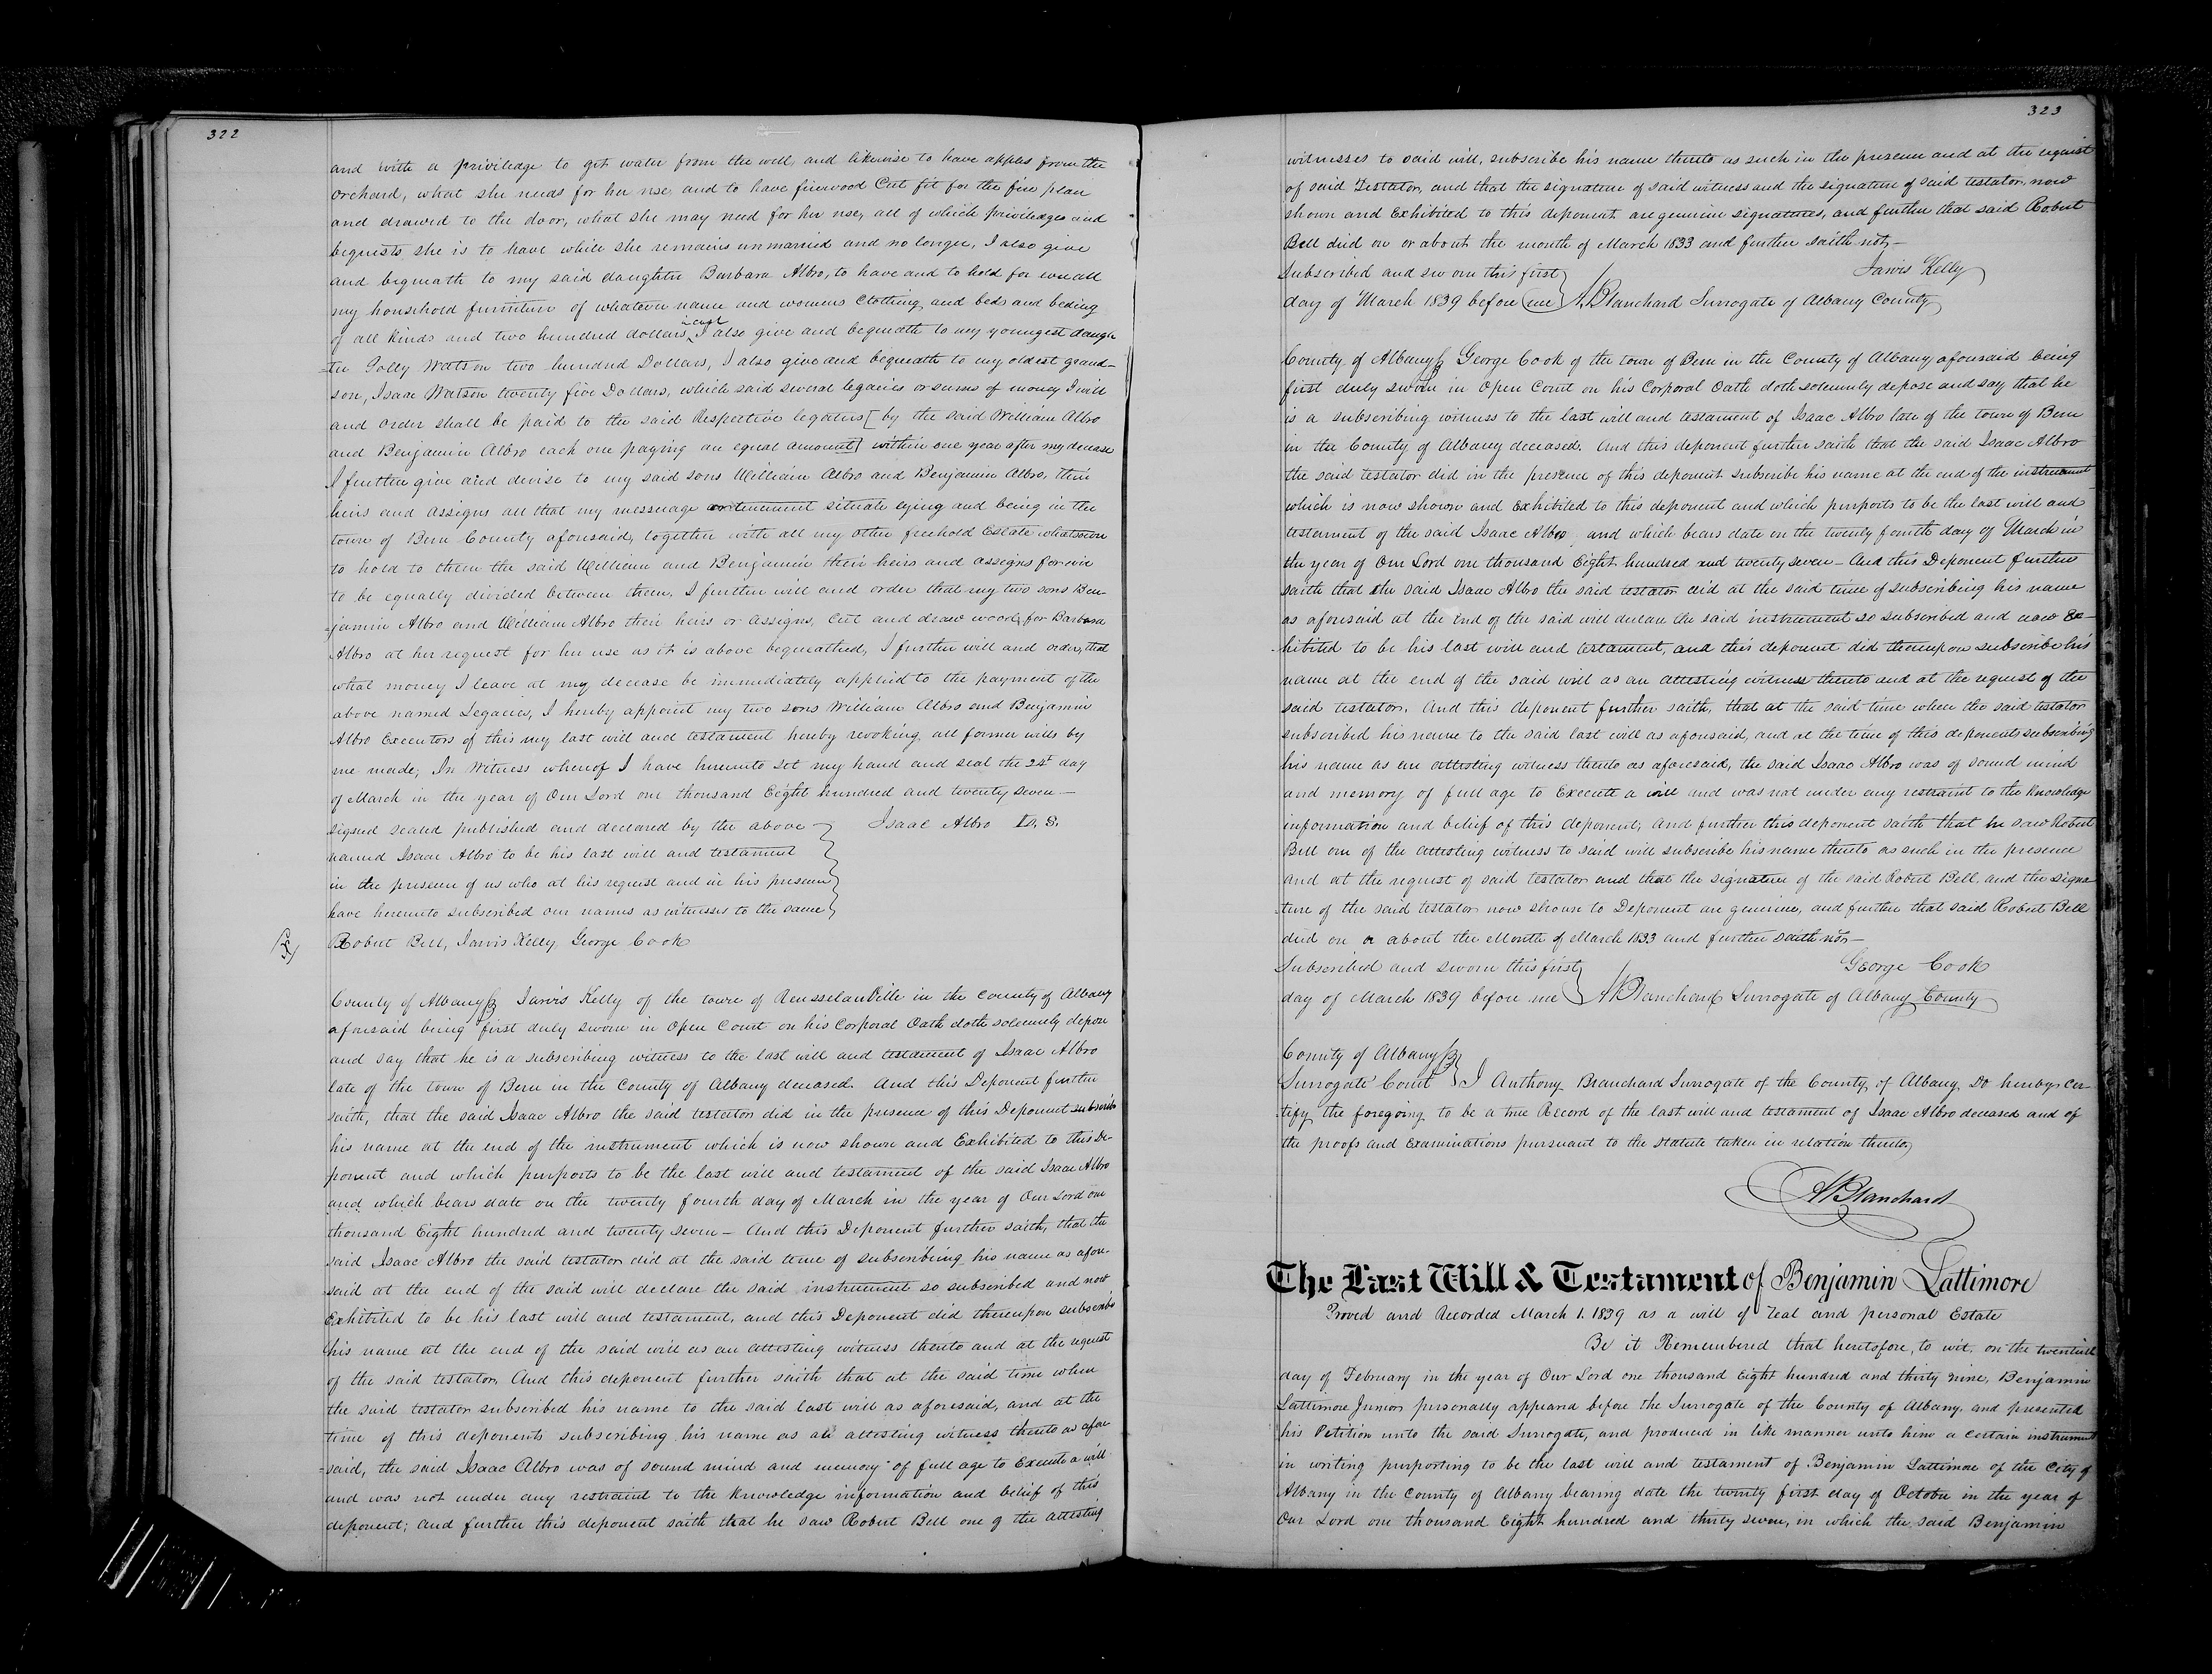 322
and with a priviledge to get water from the well, and likewise to have apples from the
orchard, what she needs for her use and to have firewood Cut fit for the fire place
and drawed to the door, what she may need for her use, all of which priviledges and
bequests she is to have while she remains unmarried and no longer, I also give
and bequeath to my said daughter Barbara Albro, to have and to hold for ever all
my household furniture of whatever name and womens Clothing, and beds and beding
in cash
of all kinds and two hundred dollars, I also give and bequeath to my youngest daugh
=ter Polly Watson two hundred Dollars, I also give and bequeath to my oldest grand-
son, Isaac Watson twenty five Dollars, which said several legacies or sums of money I will
and order shall be paid to the said Respective legatees [by the said William Albro
and Benjamin Albro each one paying an equal amount] within one year after my decease
I further give and devise to my said sons William Albro and Benjamin Albro, their
heirs and assigns all that my messuage or tenement situate lying and being in the
town of Bern County aforesaid, together with all my other freehold Estate whatsoever
to hold to them the said William and Benjamin their heirs and assigns forever
to be equally divided between them, I further will and order that my two sons Ben-
=jamin Albro and William Albro their heirs or assigns, Cut and draw wood, for Barbara
Albro at her request for her use as it is above bequeathed, I further will and order, that
what money I leave at my decease be immediately applied to the payment of the
above named Legacies, I hereby appoint my two sons William Albro and Benjamin
Albro Executors of this my last will and testament hereby revoking all former wills by
me made; In Witness whereof I have hereunto set my hand and seal the 24t day
of March in the year of Our Lord one thousand Eight hundred and twenty seven—
signed sealed published and declared by the above } Isaac Albro L. S.
named Isaac Albro to be his last will and testament
in the presence of us who at his request and in his presence
have hereunto subscribed our names as witnesses to the same
Robert Bell, Jarvis Kelly, George Cook
County of Albany ss Jarvis Kelly of the town of RensselaerVille in the County of Albany
aforesaid being first duly sworn in Open Court on his Corporal Oath doth solemnly depose
and say that he is a subscribing witness to the last will and testament of Isaac Albro
late of the town of Bern in the County of Albany deceased. And this Deponent further
saith, that the said Isaac Albro the said testator did in the presence of this Deponent subscribe
his name at the end of the instrument which is now shown and Exhibited to this De-
ponent and which purports to be the last will and testament of the said Isaac Albro
and which bears date on the twenty fourth day of March in the year of Our Lord one
thousand Eight hundred and twenty seven— And this Deponent further saith, that the
said Isaac Albro the said testator did at the said time of subscribing his name as afore-
said at the end of the said will declare the said instrument so subscribed and now
Exhibited to be his last will and testament, and this Deponent did thereupon subscribe
his name at the end of the said will as an attesting witness thereto and at the request
of the said testator, And this deponent further saith that at the said time when
the said testator subscribed his name to the said last will as aforesaid, and at the
time of this deponents subscribing his name as an attesting witness thereto as afore
=said, the said Isaac Albro was of sound mind and memory of full age to Execute a will
and was not under any restraint to the knowledge information and belief of this
deponent; and further this deponent saith that he saw Robert Bell one of the attesting
323
witnesses to said will, subscribe his name thereto as such in the presence and at the request
of said Testator, and that the signature of said witness and the signature of said testator, now
shown and Exhibited to this deponent are genuine signatures, and further that said Robert
Bell died on or about the month of March 1833 and further saith not—
Subscribed and sworn this first } Jarvis Kelly
day of March 1839 before me } A. Blanchard Surrogate of Albany County
County of Albany ss George Cook of the town of Bern in the County of Albany aforesaid being
first duly sworn in Open Court on his Corporal Oath doth solemnly depose and say that he
is a subscribing witness to the last will and testament of Isaac Albro late of the town of Bern
in the County of Albany deceased. And this deponent further saith that the said Isaac Albro
the said testator did in the presence of this deponent subscribe his name at the end of the instrument
which is now shown and Exhibited to this deponent and which purports to be the last will and
testament of the said Isaac Albro, and which bears date on the twenty fourth day of March in
the year of Our Lord one thousand Eight hundred and twenty seven— And this Deponent further
saith that the said Isaac Albro the said testator did at the said time of subscribing his name
as aforesaid at the end of the said will declare the said instrument so subscribed and now Ex-
hibited to be his last will and testament, and this deponent did thereupon subscribe his
name at the end of the said will as an attesting witness thereto and at the request of the
said testator. And this deponent further saith, that at the said time when the said testator
subscribed his name to the said last will as aforesaid, and at the time of this deponents subscribing
his name as an attesting witness thereto as aforesaid, the said Isaac Albro was of sound mind
and memory of full age to Execute a will and was not under any restraint to the knowledge
information and belief of this deponent; and further this deponent saith that he saw Robert
Bell one of the attesting witness to said will subscribe his name thereto as such in the presence
and at the request of said testator and that the signature of the said Robert Bell, and the signa
=ture of the said testator now shown to Deponent are genuine, and further that said Robert Bell
died on or about the Month of March 1833 and further saith not—
Subscribed and sworn this first } George Cook
day of March 1839 before me } A Blanchard Surrogate of Albany County
County of Albany ss
Surrogate Court } I Anthony Blanchard Surrogate of the County of Albany Do hereby cer-
tify the foregoing to be a true Record of the last will and testament of Isaac Albro deceased and of
the proofs and Examinations pursuant to the statute taken in relation thereto,
A Blanchard
The Last Will & Testament of Benjamin Lattimore
Proved and Recorded March 1. 1839 as a will of real and personal Estate
Be it Remembered that heretofore, to wit, on the twentieth
day of February in the year of Our Lord one thousand Eight hundred and thirty nine, Benjamin
Lattimore Junior personally appeared before the Surrogate of the County of Albany, and presented
his Petition unto the said Surrogate, and produced in like manner unto him a certain instrument
in writing purporting to be the last will and testament of Benjamin Lattimore of the City of
Albany in the County of Albany bearing date the twenty first day of October in the year of
Our Lord one thousand Eight hundred and thirty seven, in which the said Benjamin